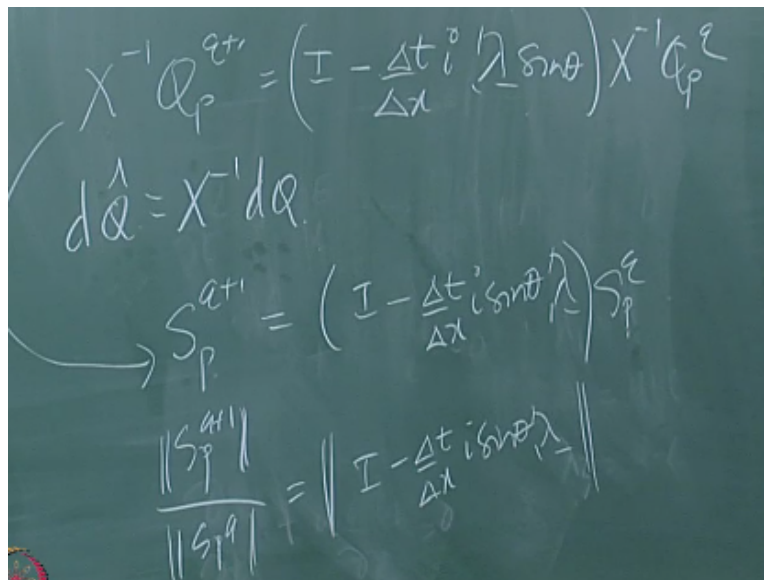 X⁻¹ Q_p^{q+1} = (I - Δt/Δx i λ sinθ) X⁻¹ Q_p^q
dQ̂ = X⁻¹ dQ.
S_p^{q+1} = (I - Δt/Δx i sinθ λ) S_p^q
||S_p^{q+1}|| / ||S_p^q|| = || I - Δt/Δx i sinθ λ ||